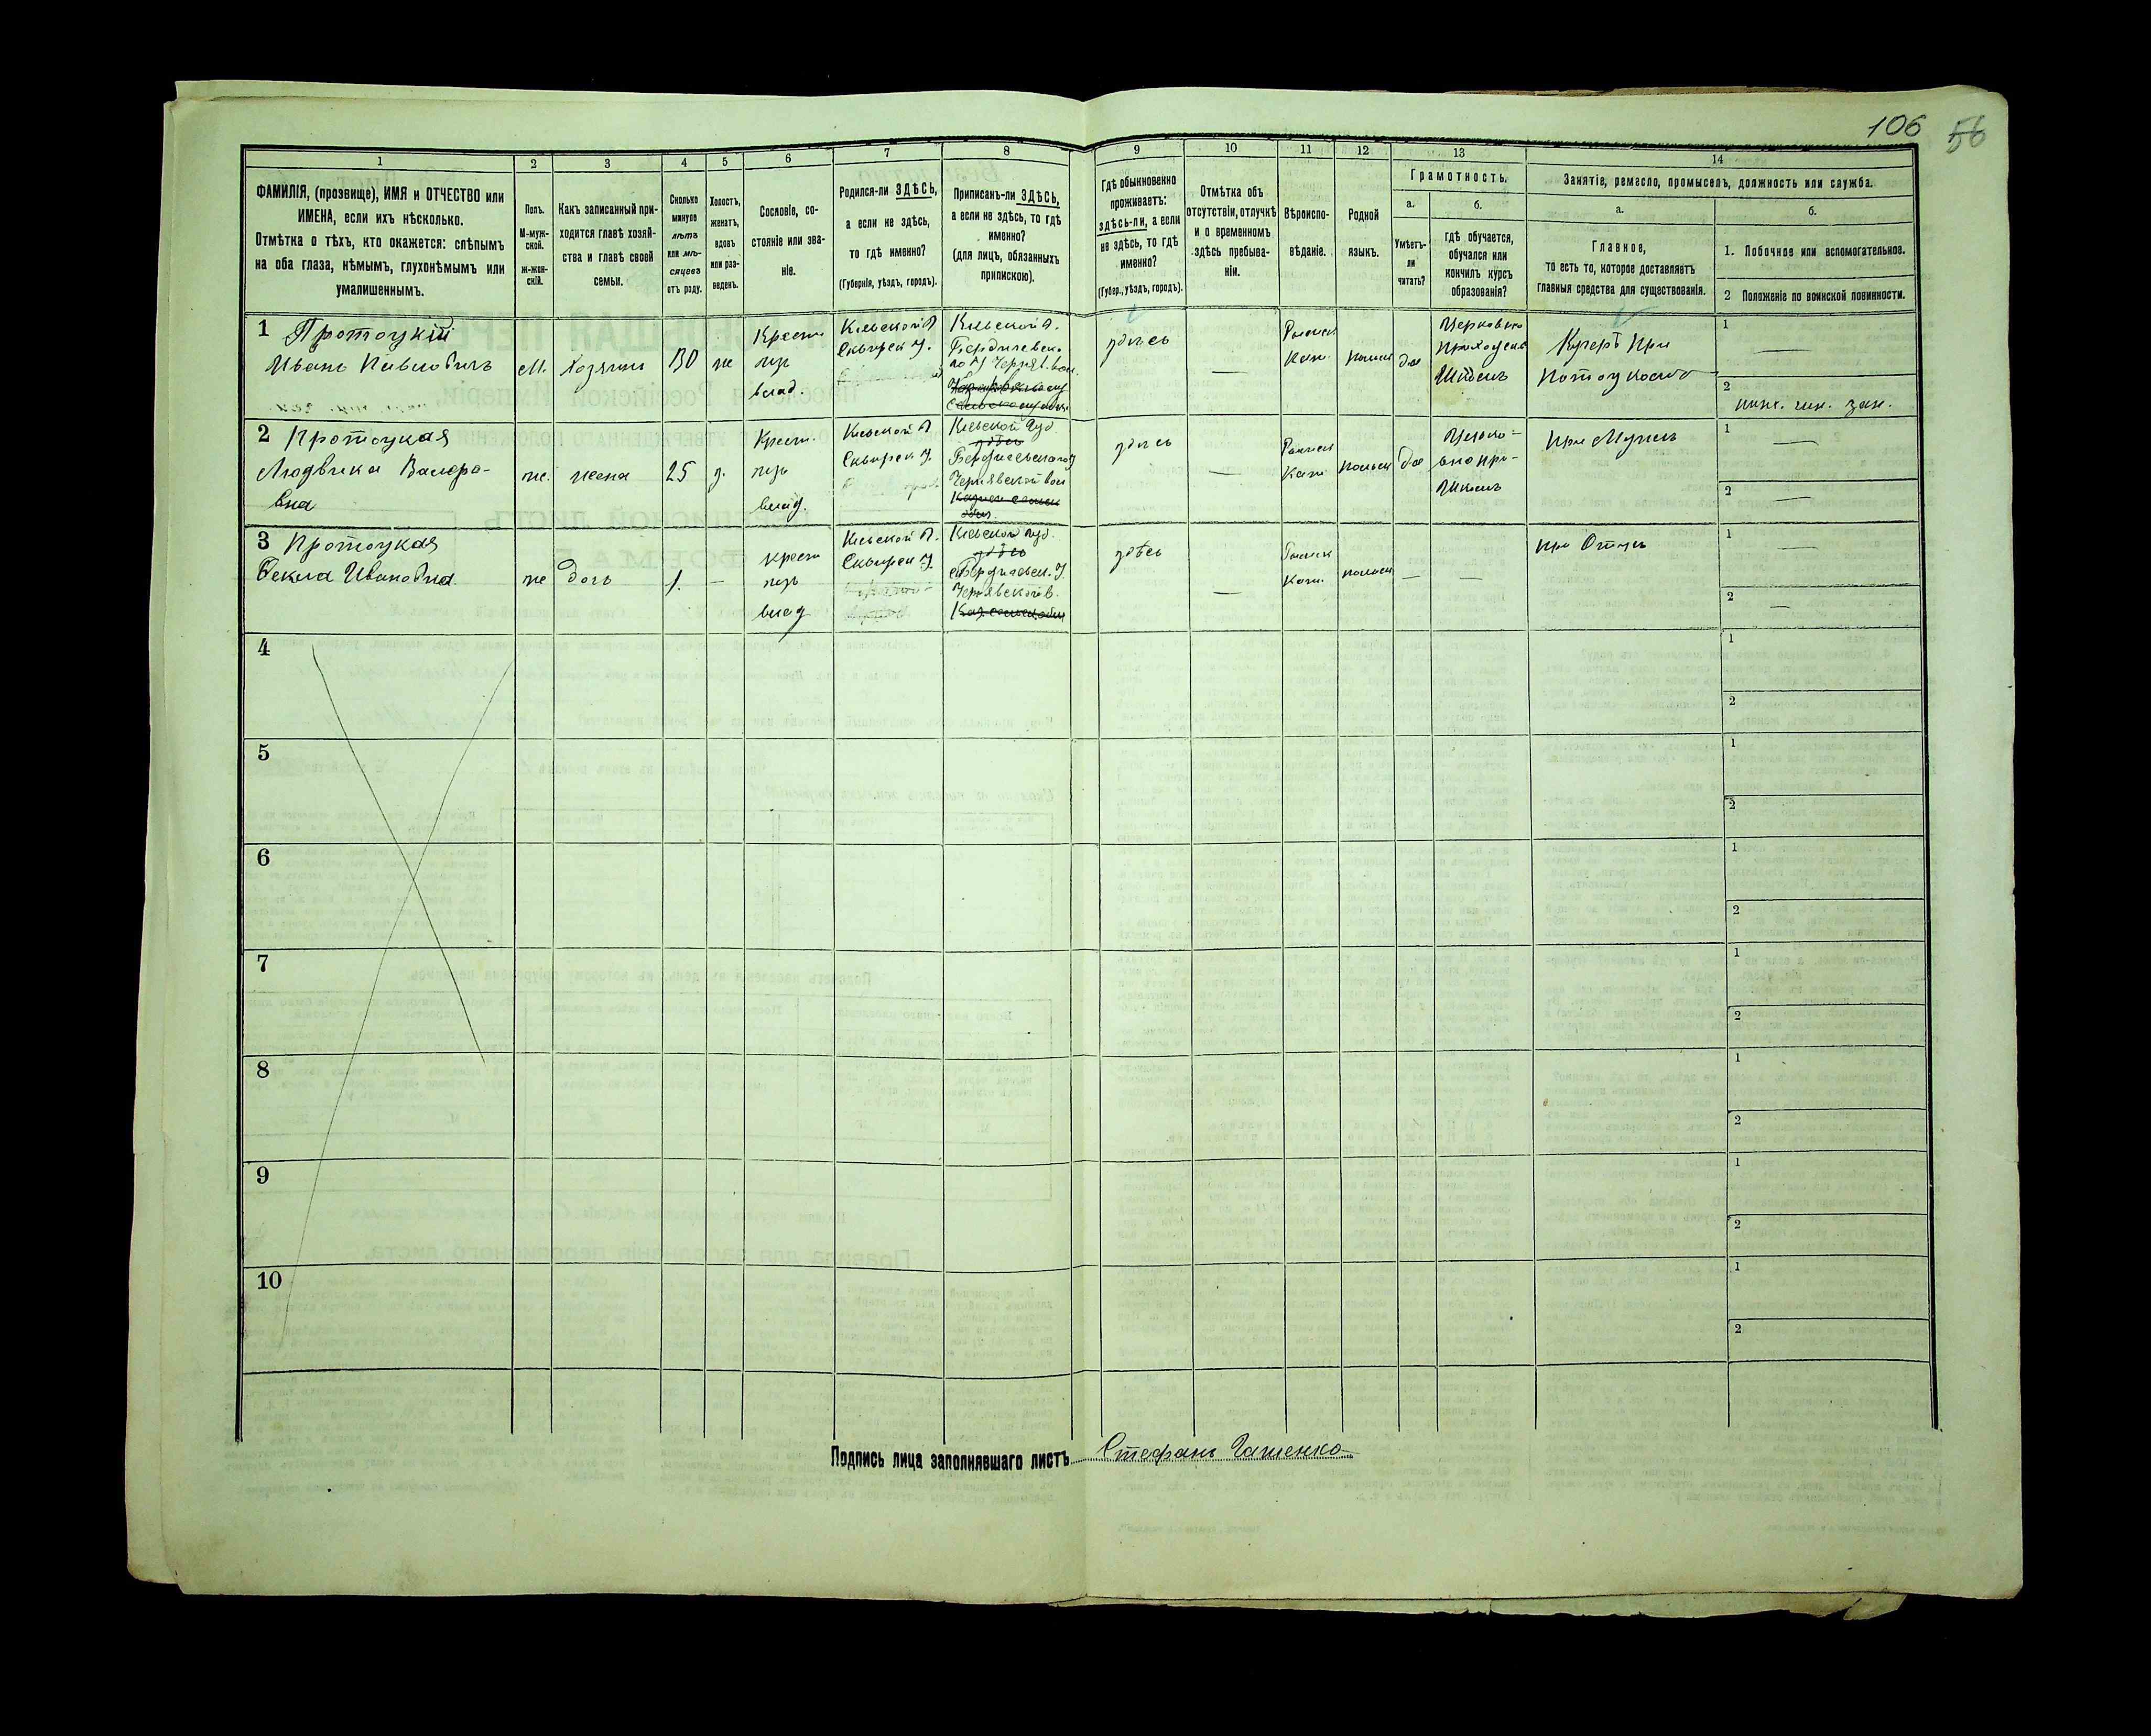 106 56
1 2 3 4 5 6 7 8 9 10 11 12 13 14
ФАМИЛІЯ, (прозвище), ИМЯ и ОТЧЕСТВО или
ИМЕНА, если ихъ нѣсколько.
Отмѣтка о тѣхъ, кто окажется: слѣпымъ
на оба глаза, нѣмымъ, глухонѣмымъ или
умалишеннымъ.
Полъ.
М-муж-
ской.
Ж-жен-
скій.
Какъ записанный при-
ходится главѣ хозяй-
ства и главѣ своей
семьи.
Сколько
минуло
лѣтъ
или мѣ-
сяцевъ
отъ роду.
Холостъ,
женатъ,
вдовъ
или раз-
веденъ.
Сословіе, со-
стояніе или зва-
ніе.
Родился-ли ЗДѢСЬ,
а если не здѣсь,
то гдѣ именно?
(Губернія, уѣздъ, городъ).
Приписанъ-ли ЗДѢСЬ,
а если не здѣсь, то гдѣ
именно?
(для лицъ, обязанныхъ
припискою).
Гдѣ обыкновенно
проживаетъ:
здѣсь-ли, а если
не здѣсь, то гдѣ
именно?
(Губер., уѣздъ, городъ).
Отмѣтка объ
отсутствіи, отлучкѣ
и о временномъ
здѣсь пребыва-
ніи.
Вѣроиспо-
вѣданіе.
Родной
языкъ.
Грамотность.
а.
Умѣетъ-
ли
читать?
б.
гдѣ обучается,
обучался или
кончилъ курсъ
образованія?
Занятіе, ремесло, промыселъ, должность или служба.
а.
Главное,
то есть то, которое доставляетъ
главныя средства для существованія.
б.
1. Побочное или вспомогательное.
2 Положеніе по воинской повинности.
1 Протоцкій
Иванъ Павловичъ
М. Хозяинъ 30 же
Крест.
изъ
влад.
Кіевской Г
Сквирск У.
Кіевской Г.
Бердичевско
го У Черняв. вол.
здѣсь
—
Римск
Кат.
польск
да
Церковно
приходск
Школъ
Кучеръ при
1 —
2
2 Протоцкая
Людвика Валеро-
вна
же. жена 25 з.
Крест.
изъ
влад.
Кіевской Г
Сквирск У.
Кіевской Губ.
здѣсь
Бердичевскаго У
Чернявской вол
здѣсь
—
Римск
Кат
польск
да
Церко-
вно при-
Школъ
при Мужъ
1 —
2 —
3 Протоцкая
Фекла Ивановна
же дочь 1. —
Крест
изъ
влад
Кіевской Г.
Сквирск У.
Кіевской Губ.
здѣсь
Бердичевск. У.
Чернявской в.
здѣсь
—
Римск
Кат.
польск
— —
при Отцъ
1 —
2 —
4 1
2
5 1
2
6 1
2
7 1
2
8 1
2
9 1
2
10 1
2
Подпись лица заполнявшаго листъ Стефанъ